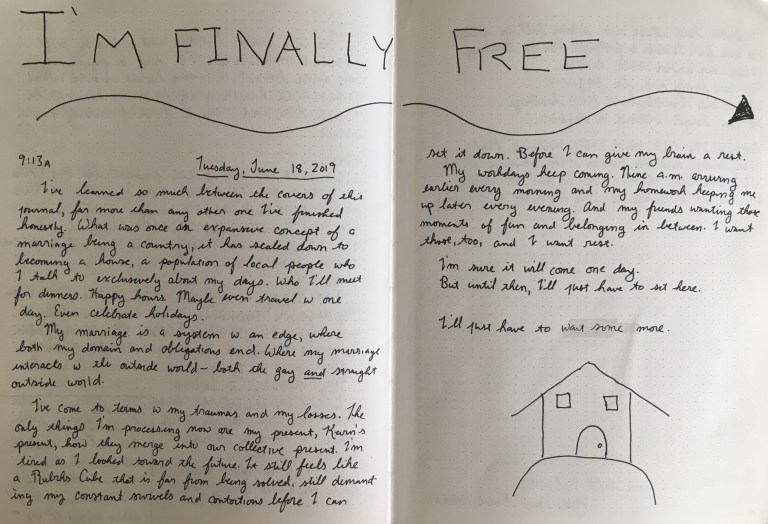 I'M FINALLY FREE
9:13A
Tuesday, June 18, 2019
I've learned so much between the covers of this
journal, far more than any other one I've finished
honestly. What was once an expansive concept of a
marriage being a country, it has scaled down to
becoming a house, a population of local people who
I talk to exclusively about my days. Who I'll meet
for dinners. Happy hours. Maybe even travel w one
day. Even celebrate holidays.
My marriage is a system w an edge, where
both my domain and obligations end. Where my marriage
interacts w the outside world - both the gay and straight
outside world.
I've come to terms w my traumas and my losses. The
only things I'm processing now are my present, Karin's
present, how they merge into our collective present. I'm
tired as I looked toward the future. It still feels like
a Rubiks Cube that is far from being solved, still demand-
ing my constant swivels and contortions before I can
set it down. Before I can give my brain a rest.
My workdays keep coming. Nine a.m. arriving
earlier every morning and my homework keeping me
up later every evening. And my friends wanting those
moments of fun and belonging in between. I want
those, too, and I want rest.
I'm sure it will come one day.
But until then, I'll just have to sit here.
I'll just have to wait some more.